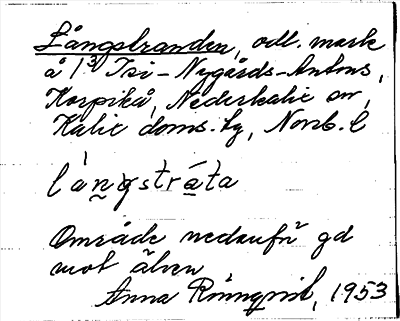 Långstranden, odl. mark
å 1³ Isi-Nygårds-Antons,
Korpikå, Nederkalix sn,
Kalix doms.lg, Norrb. l
långstráta
Område nedanför gd
mot älven
Anna Rönnqvist, 1953